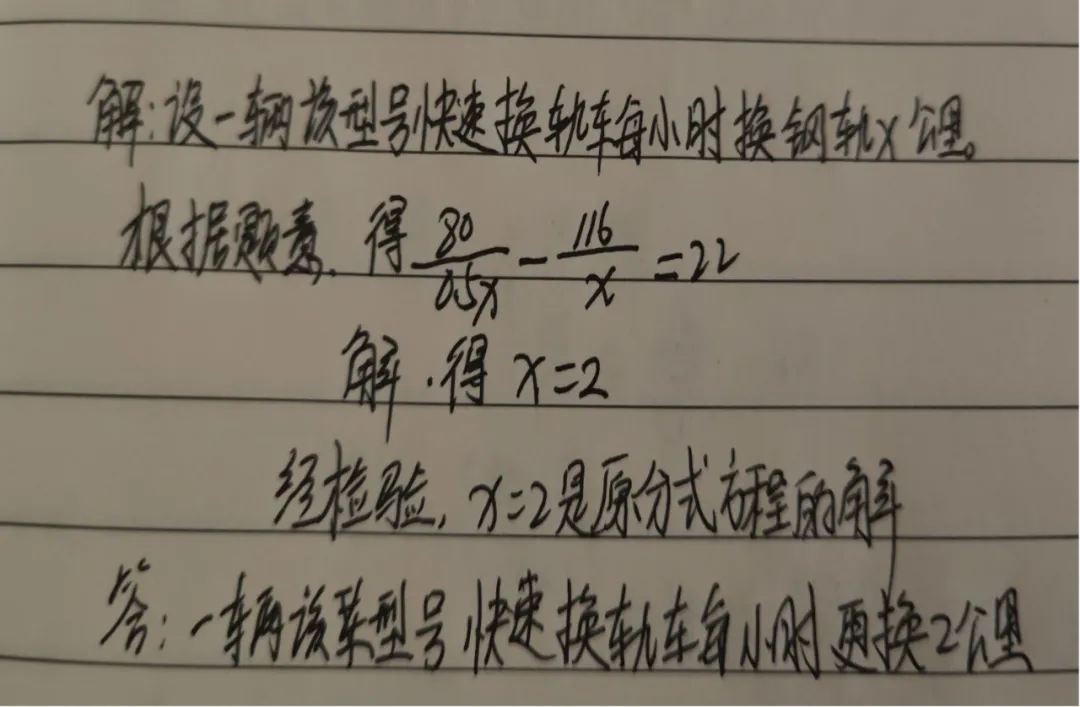 解:设一辆该型号快速换轨车每小时换钢轨x公里。
根据题意,得 80/0.5x - 116/x = 22
解.得 x=2
经检验,x=2是原分式方程的解
答:一辆该型号快速换轨车每小时更换2公里